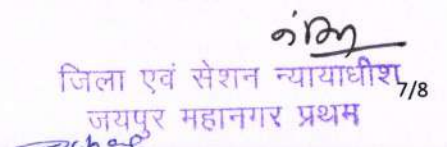 जिला एवं सेशन न्यायाधीश 7/8
जयपुर महानगर प्रथम